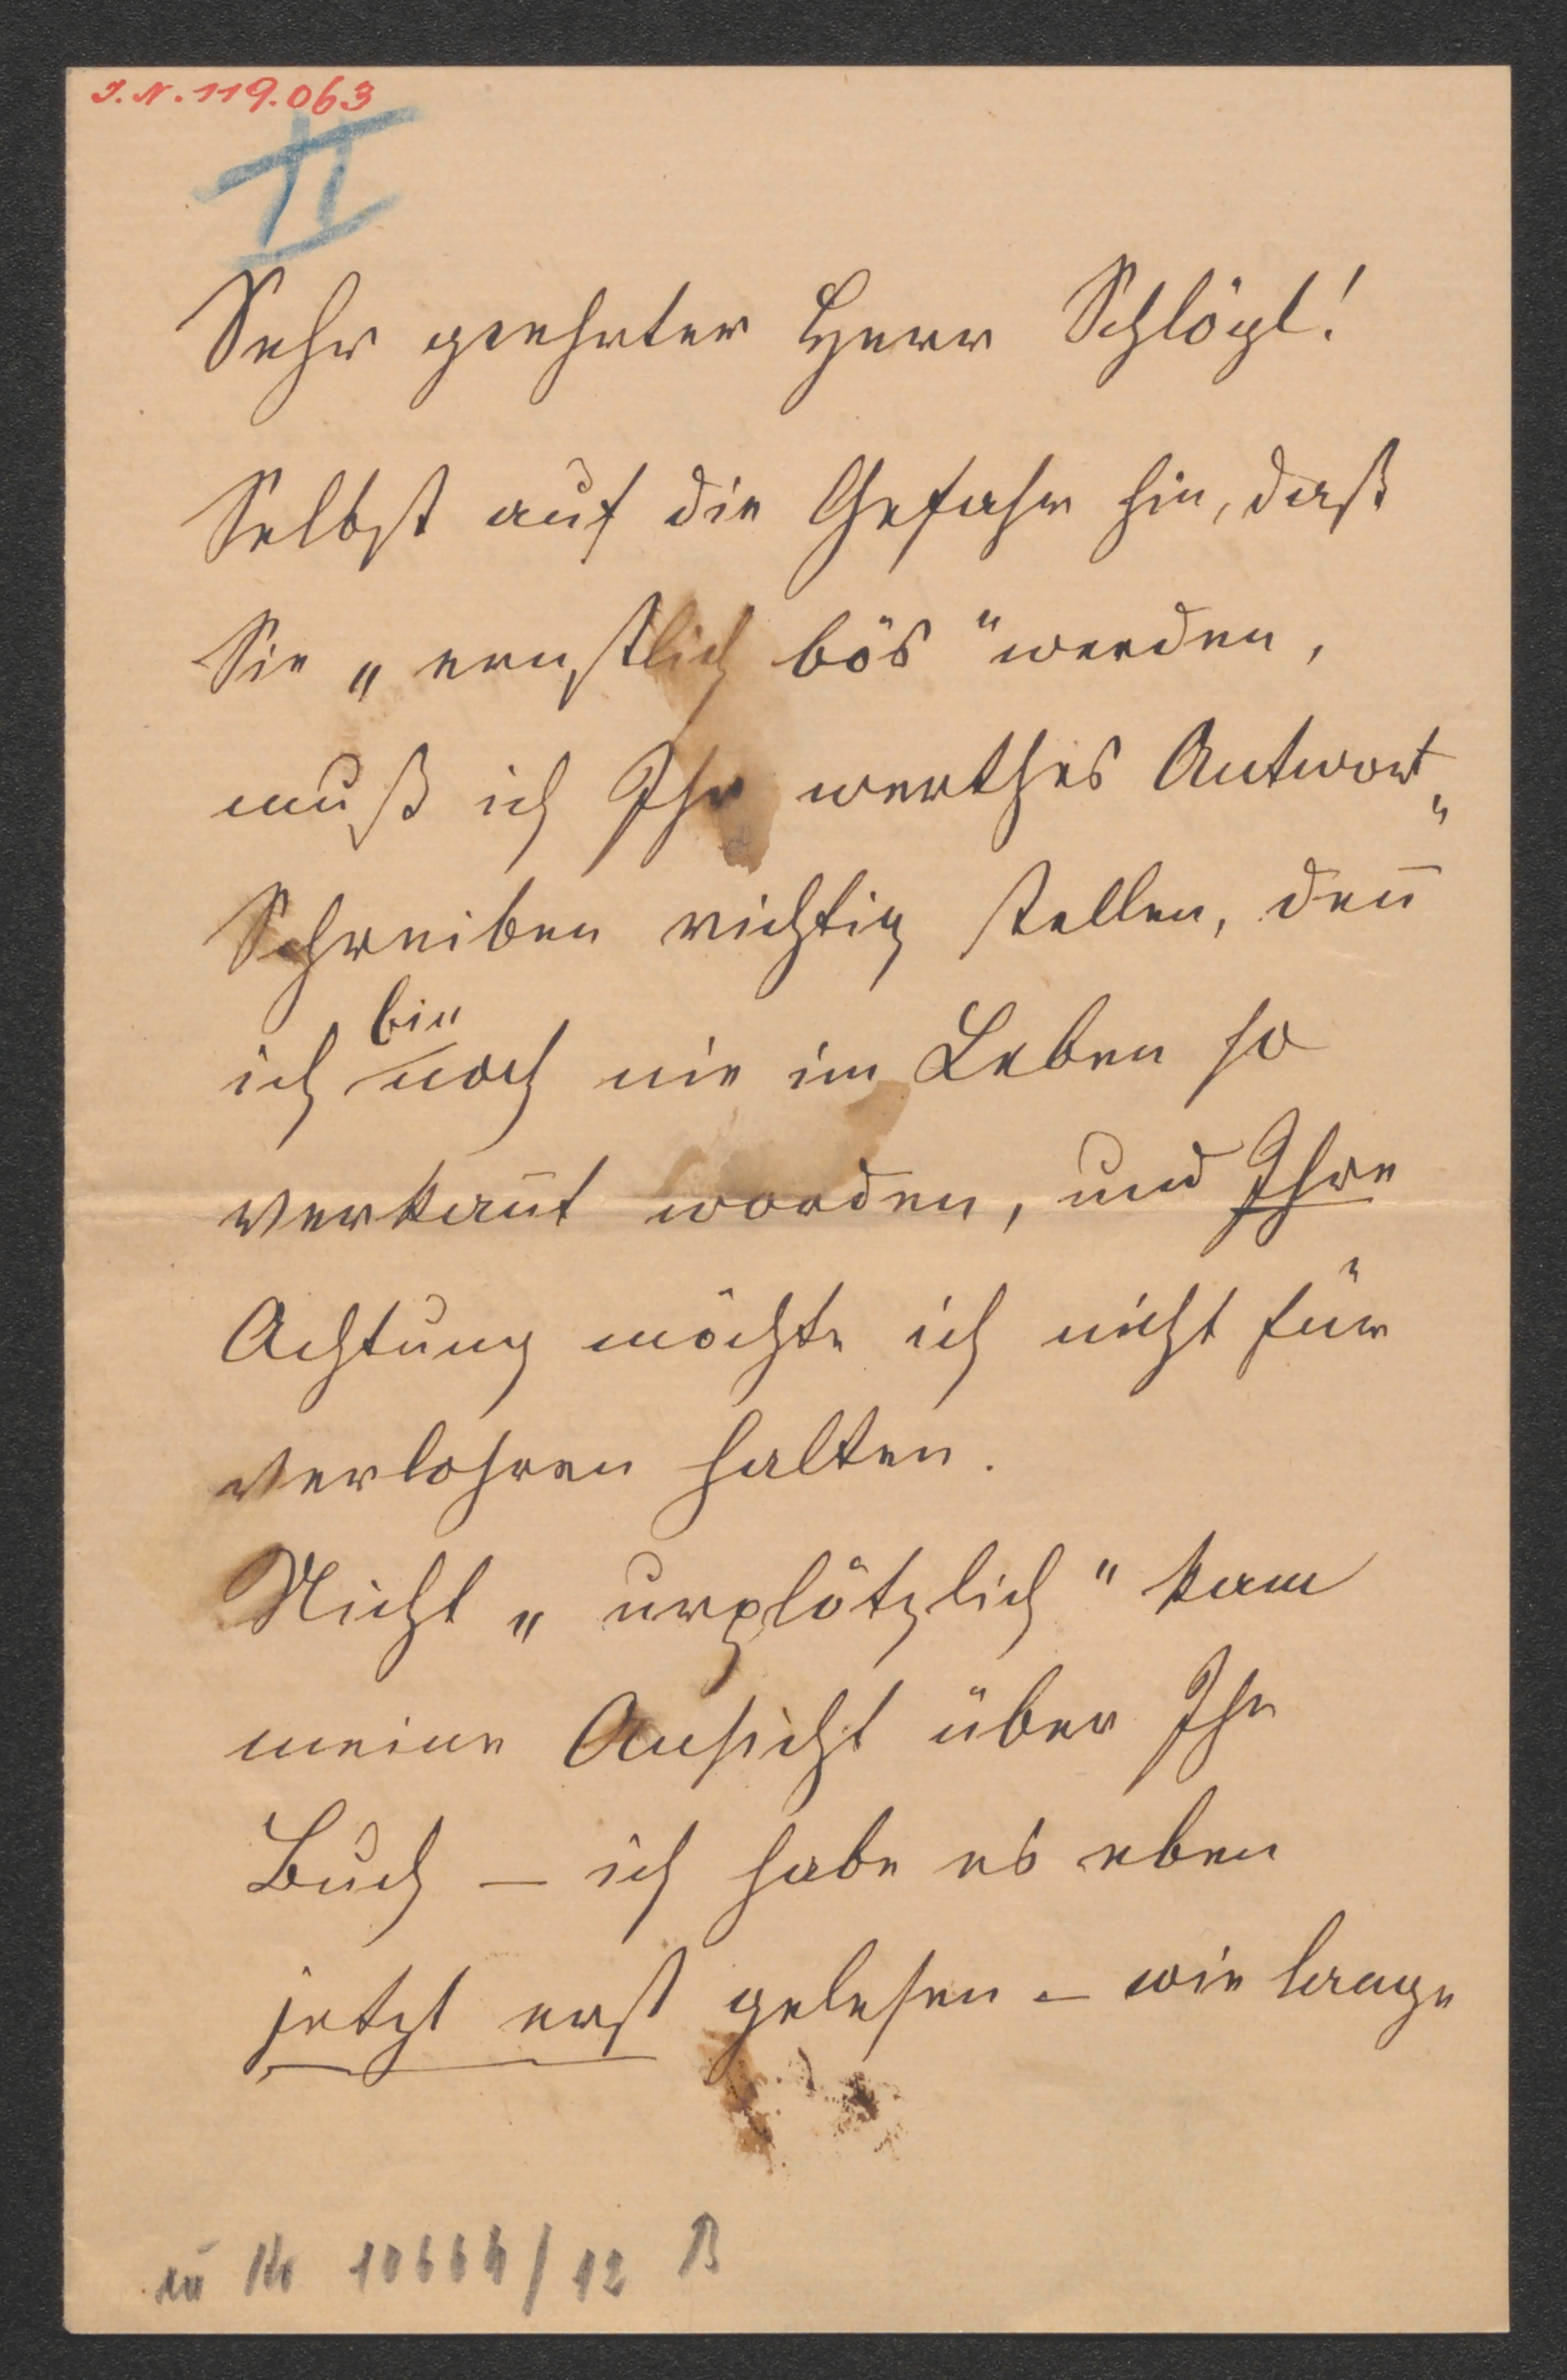 I.N. 119.063
II
Sehr geehrter Herr Schlögl!
Selbst auf die Gefahr hin, daß
Sie „ernstlich bös" werden,
muß ich Ihr werthes Antwort„
Schreiben richtig stellen, deñ
bin
ich noch nie im Leben so
verkañt worden, und Ihre
Achtung möchte ich nicht für
verlohren halten.
Nicht „urplötzlich" kam
meine Ansicht über Ihr
Buch – ich habe es eben
jetzt erst gelesen – wie lange
10664/12 B